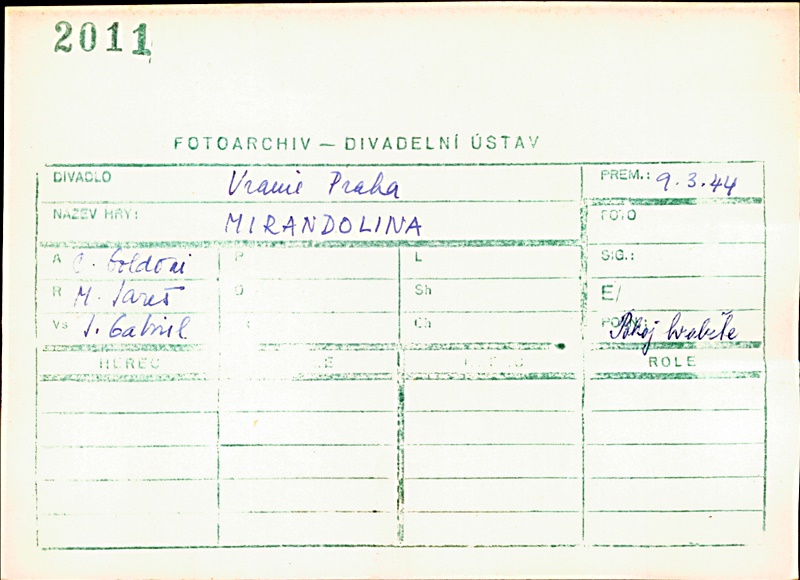 2011
FOTOARCHIV — DIVADELNÍ ÚSTAV
DIVADLO Uranie Praha PREM.: 9.3.44
NÁZEV HRY: MIRANDOLINA FOTO
A C. Goldoni P L SIG.:
R M. Jareš Sh E/
Vs J. Gabriel Ch Pokoj hraběte
HEREC ROLE